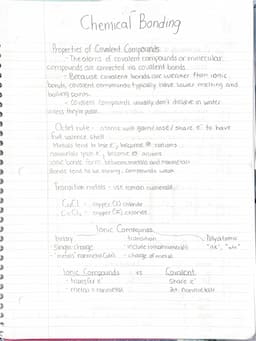 Chemical Bonding
Properties of Covalent Compounds
- The atoms of covalent compounds or molecular
compounds are connected via covalent bonds.
- Because covalent bonds are weaker than ionic
bonds, covalent compounds typically have lower melting and
boiling points.
- Covalent compounds usually don't dissolve in water
unless they're polar.
Octet rule - atoms will gain/lose/share e⁻ to have
full valence shell
Metals tend to lose e⁻, become ⊕ cations
nonmetals gain e⁻, become ⊖ anions
ionic bonds form between metals and nonmetals
Bonds tend to be strong, compounds weak
Transition metals - use roman numerals
CuCl - copper (I) chloride
CuCl₂ - copper (II) chloride
Ionic Compounds
binary transition Polyatomic
single charge - include roman numerals "ate", "ite"
- metals nonmetal (ide) - charge of metal
Ionic Compounds vs Covalent
- transfer e⁻ Share e⁻
- metal + nonmetal 2+ nonmetals